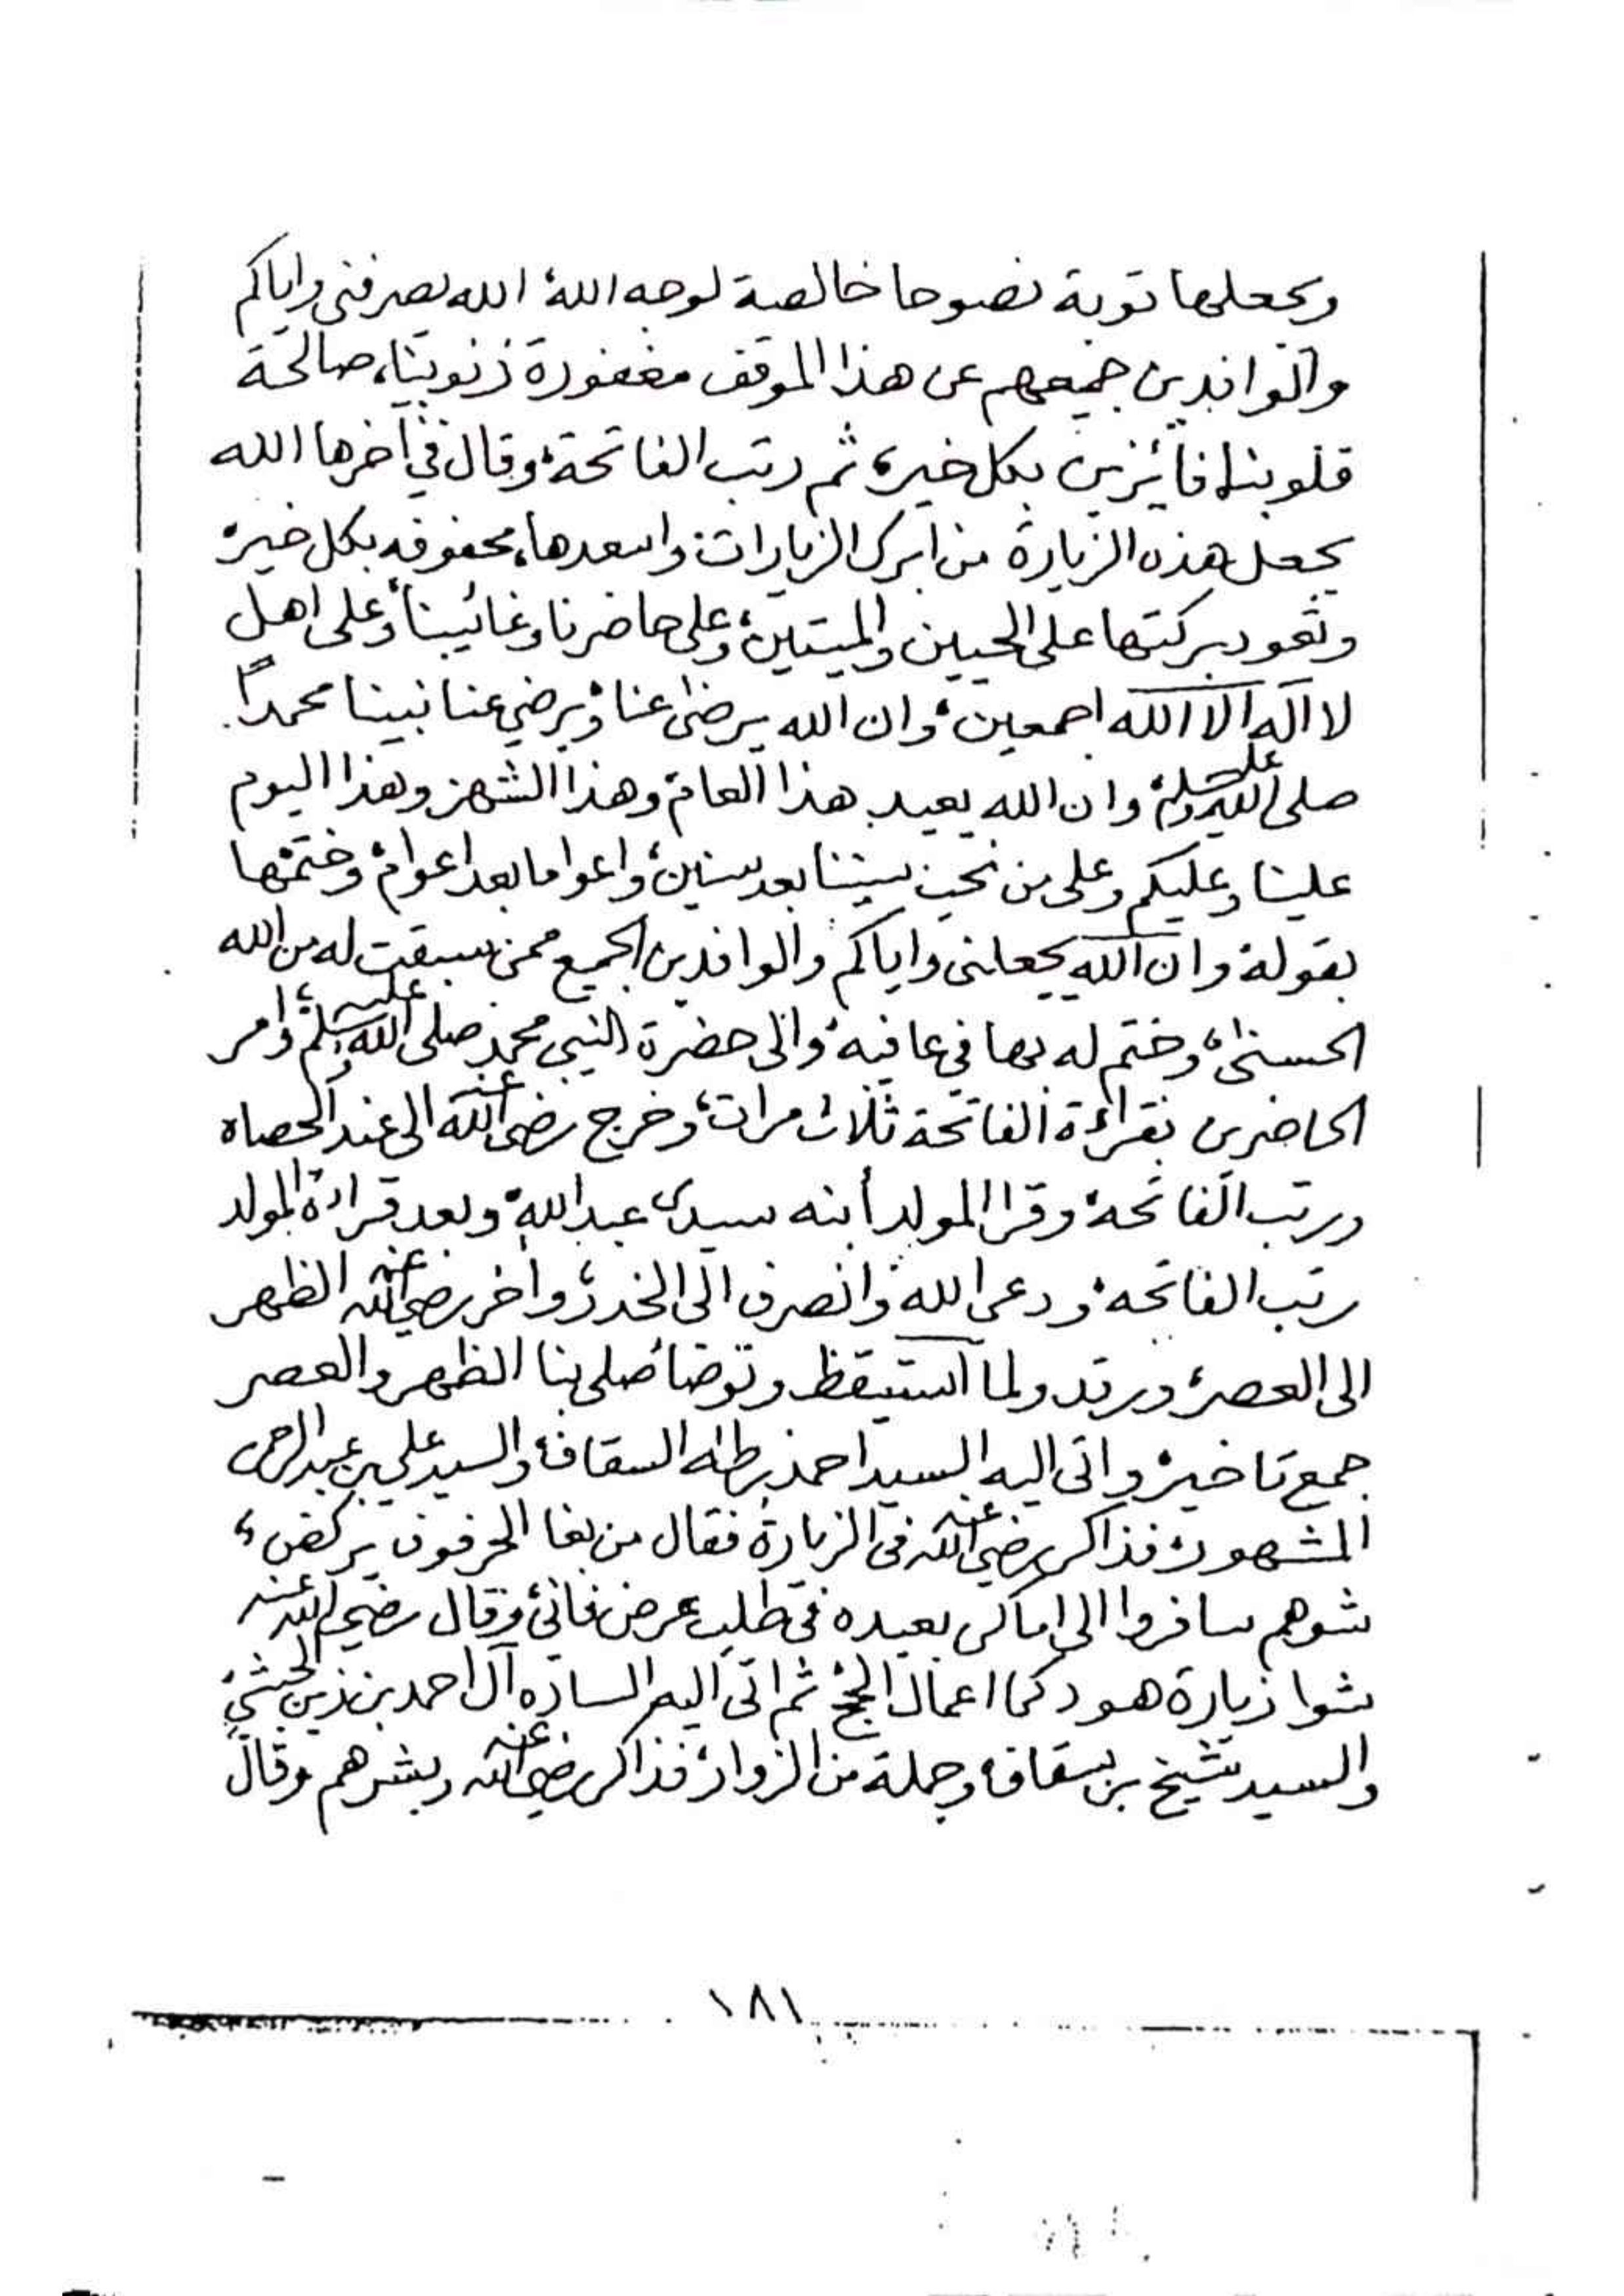 ويجعلها توبة نصوحا خالصة لوجه الله، الله يصرفني واياكم
والوافدين جميعهم عن هذا الموقف مغفورة ذنوبنا، صالحة
قلوبنا، فائزين بكل خير، ثم رتب الفاتحة، وقال في آخرها الله
يجعل هذه الزيارة من ابرك الزيارات، واسعدها، محفوفه بكل خير،
وتعود بركتها على الحيين والميتين، وعلى حاضرنا وغائبنا، وعلى اهل
لا اله الا الله اجمعين، وان الله يرضى عنا، ويرضي عنا نبينا محمداً
صلى الله عليه وسلم، وان الله يعيد هذا العام، وهذا الشهر، وهذا اليوم
علينا وعليكم وعلى من نحب سنينا بعد سنين، واعواما بعد اعوام، وختمها
بقوله، وان الله يجعلني واياكم والوافدين الجميع ممن سبقت له من الله
الحسنى، وختم له بها في عافيه، والى حضرة النبي محمد صلى الله عليه وسلم، وامر
الحاضرين بقراءة الفاتحة ثلاث مرات، وخرج رضي الله عنه الى عند الحصاه
ورتب الفاتحة، وقرا المولد ابنه سيدي عبدالله، وبعد قراءة المولد
رتب الفاتحه، ودعى الله، وانصرف الى الخدر، واخر رضي الله عنه الظهر
الى العصر، ورقد ولما استيقظ وتوضا صلى بنا الظهر والعصر
جمع تاخير، واتى اليه السيد احمد بن طه السقاف، والسيد علي بن عبدالرحمن
المشهور، فذاكر رضي الله عنه في الزيارة، فقال من بغا الحرفون يركض،
شوهم سافروا الى اماكن بعيده في طلب عرض فاني، وقال رضي الله عنه
شوا زيارة هود كما اعمال الحج، ثم اتى اليه الساده آل احمد بن زين الحبشي،
والسيد شيخ بن سقاف، وجملة من الزوار، فذاكر رضي الله عنه وبشرهم وقال
١٨١